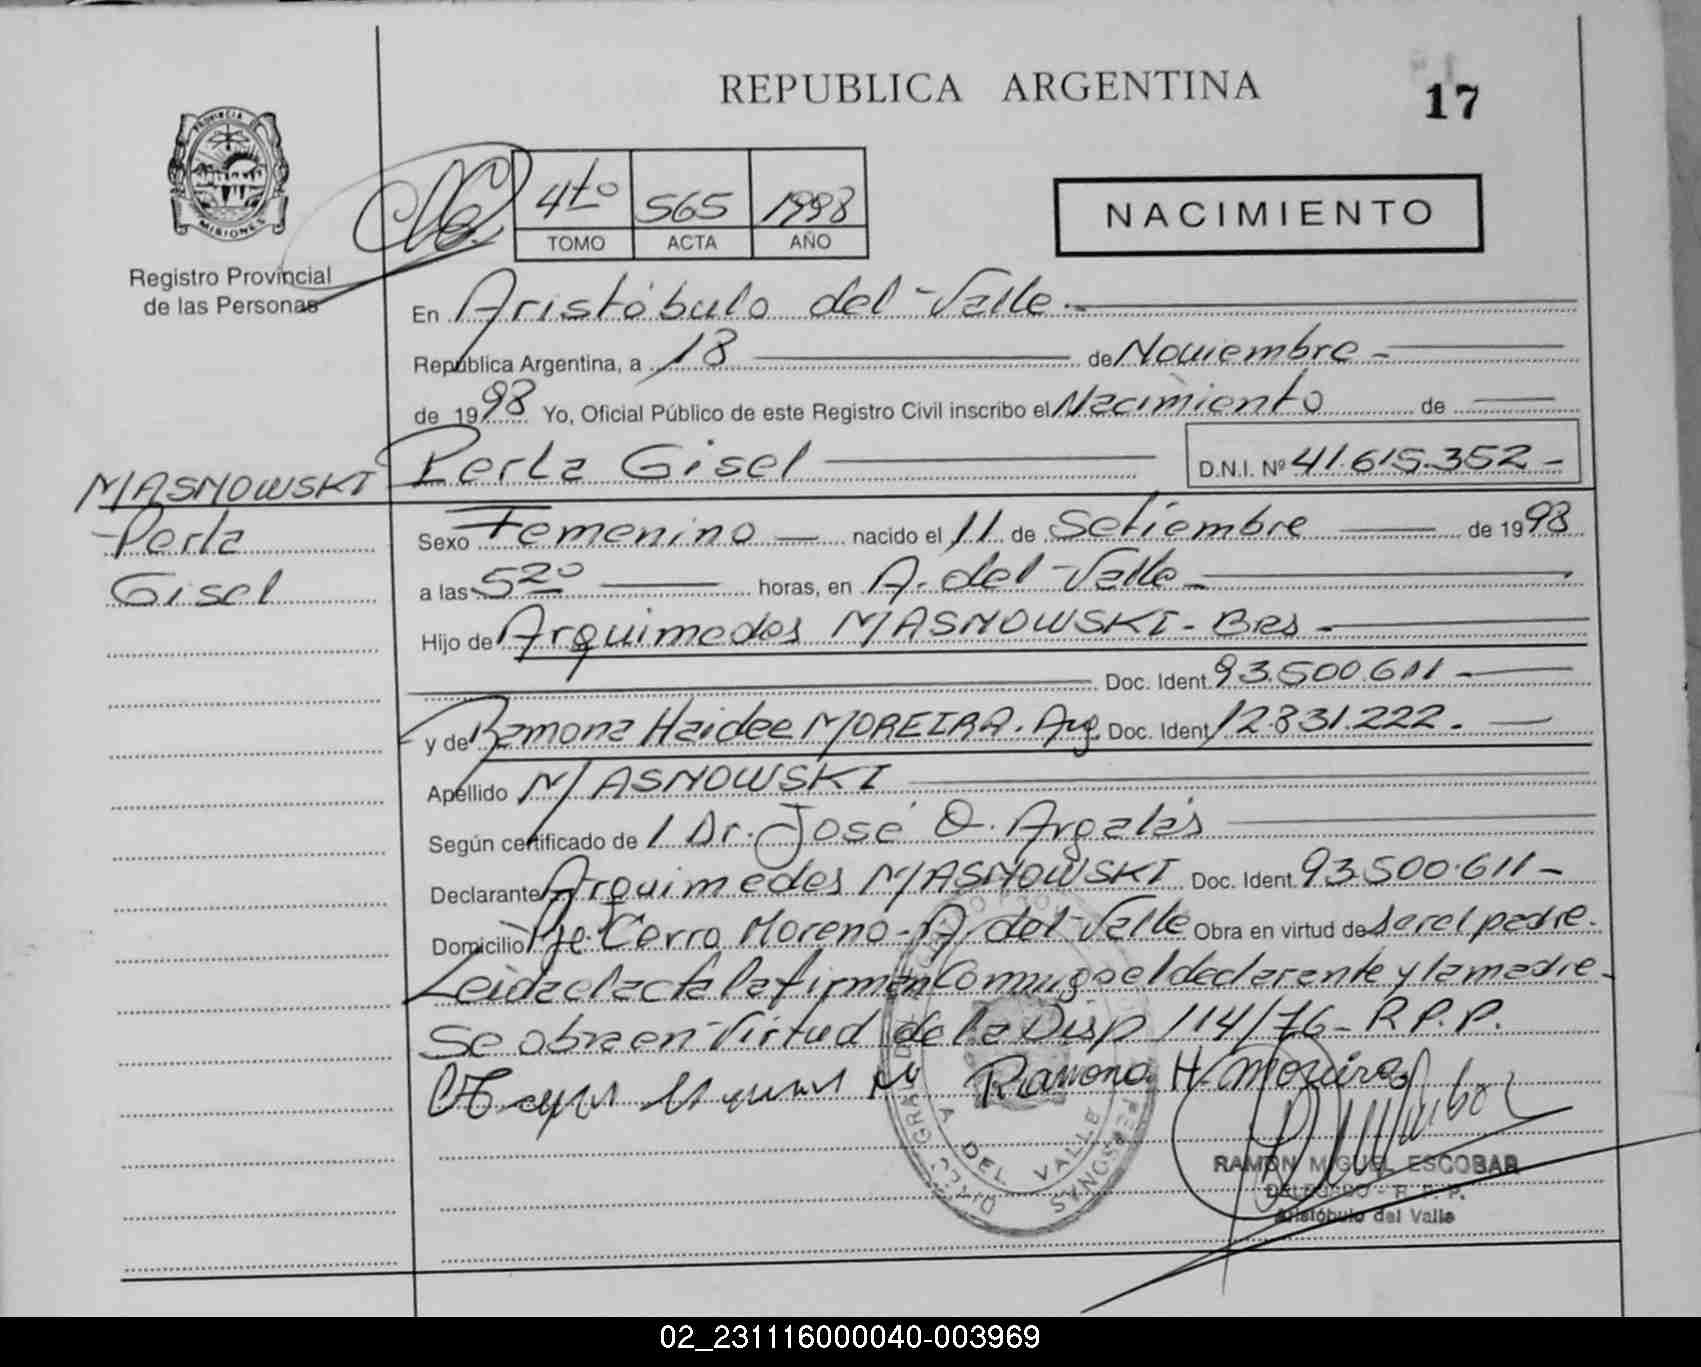 REPUBLICA ARGENTINA
17
PROVINCIA DE
MISIONES
Registro Provincial
de las Personas
4to 565 1998
TOMO ACTA AÑO
NACIMIENTO
En Aristóbulo del Valle.-
República Argentina, a 18 de Noviembre -
de 1998 Yo, Oficial Público de este Registro Civil inscribo el Nacimiento de
MASNOWSKI
Perla
Gisel
Perla Gisel D.N.I. Nº 41.615.352 -
Sexo Femenino nacido el 11 de Setiembre de 1998
a las 5 20 horas, en A. del Valle -
Hijo de Arquimedes MASNOWSKI - Bras -
Doc. Ident. 93.500.611 -
y de Ramona Haidee MOREIRA. Arg. Doc. Ident. 12.831.222.-
Apellido MASNOWSKI
Según certificado de 1 Dr. José O. Argalás
Declarante Arquimedes MASNOWSKI Doc. Ident. 93.500.611 -
Domicilio Pje. Cerro Moreno - A. del Valle Obra en virtud de ser el padre.
Leida el acta la firman conmigo el declarante y la madre -
Se obra en virtud de la Disp 114/76 - R.P.P.
Ramona H. Moreira
A DEL VALLE
PERSONAS
RAMON MIGUEL ESCOBAR
DELEGADO - R. P. P.
Aristóbulo del Valle
02_231116000040-003969